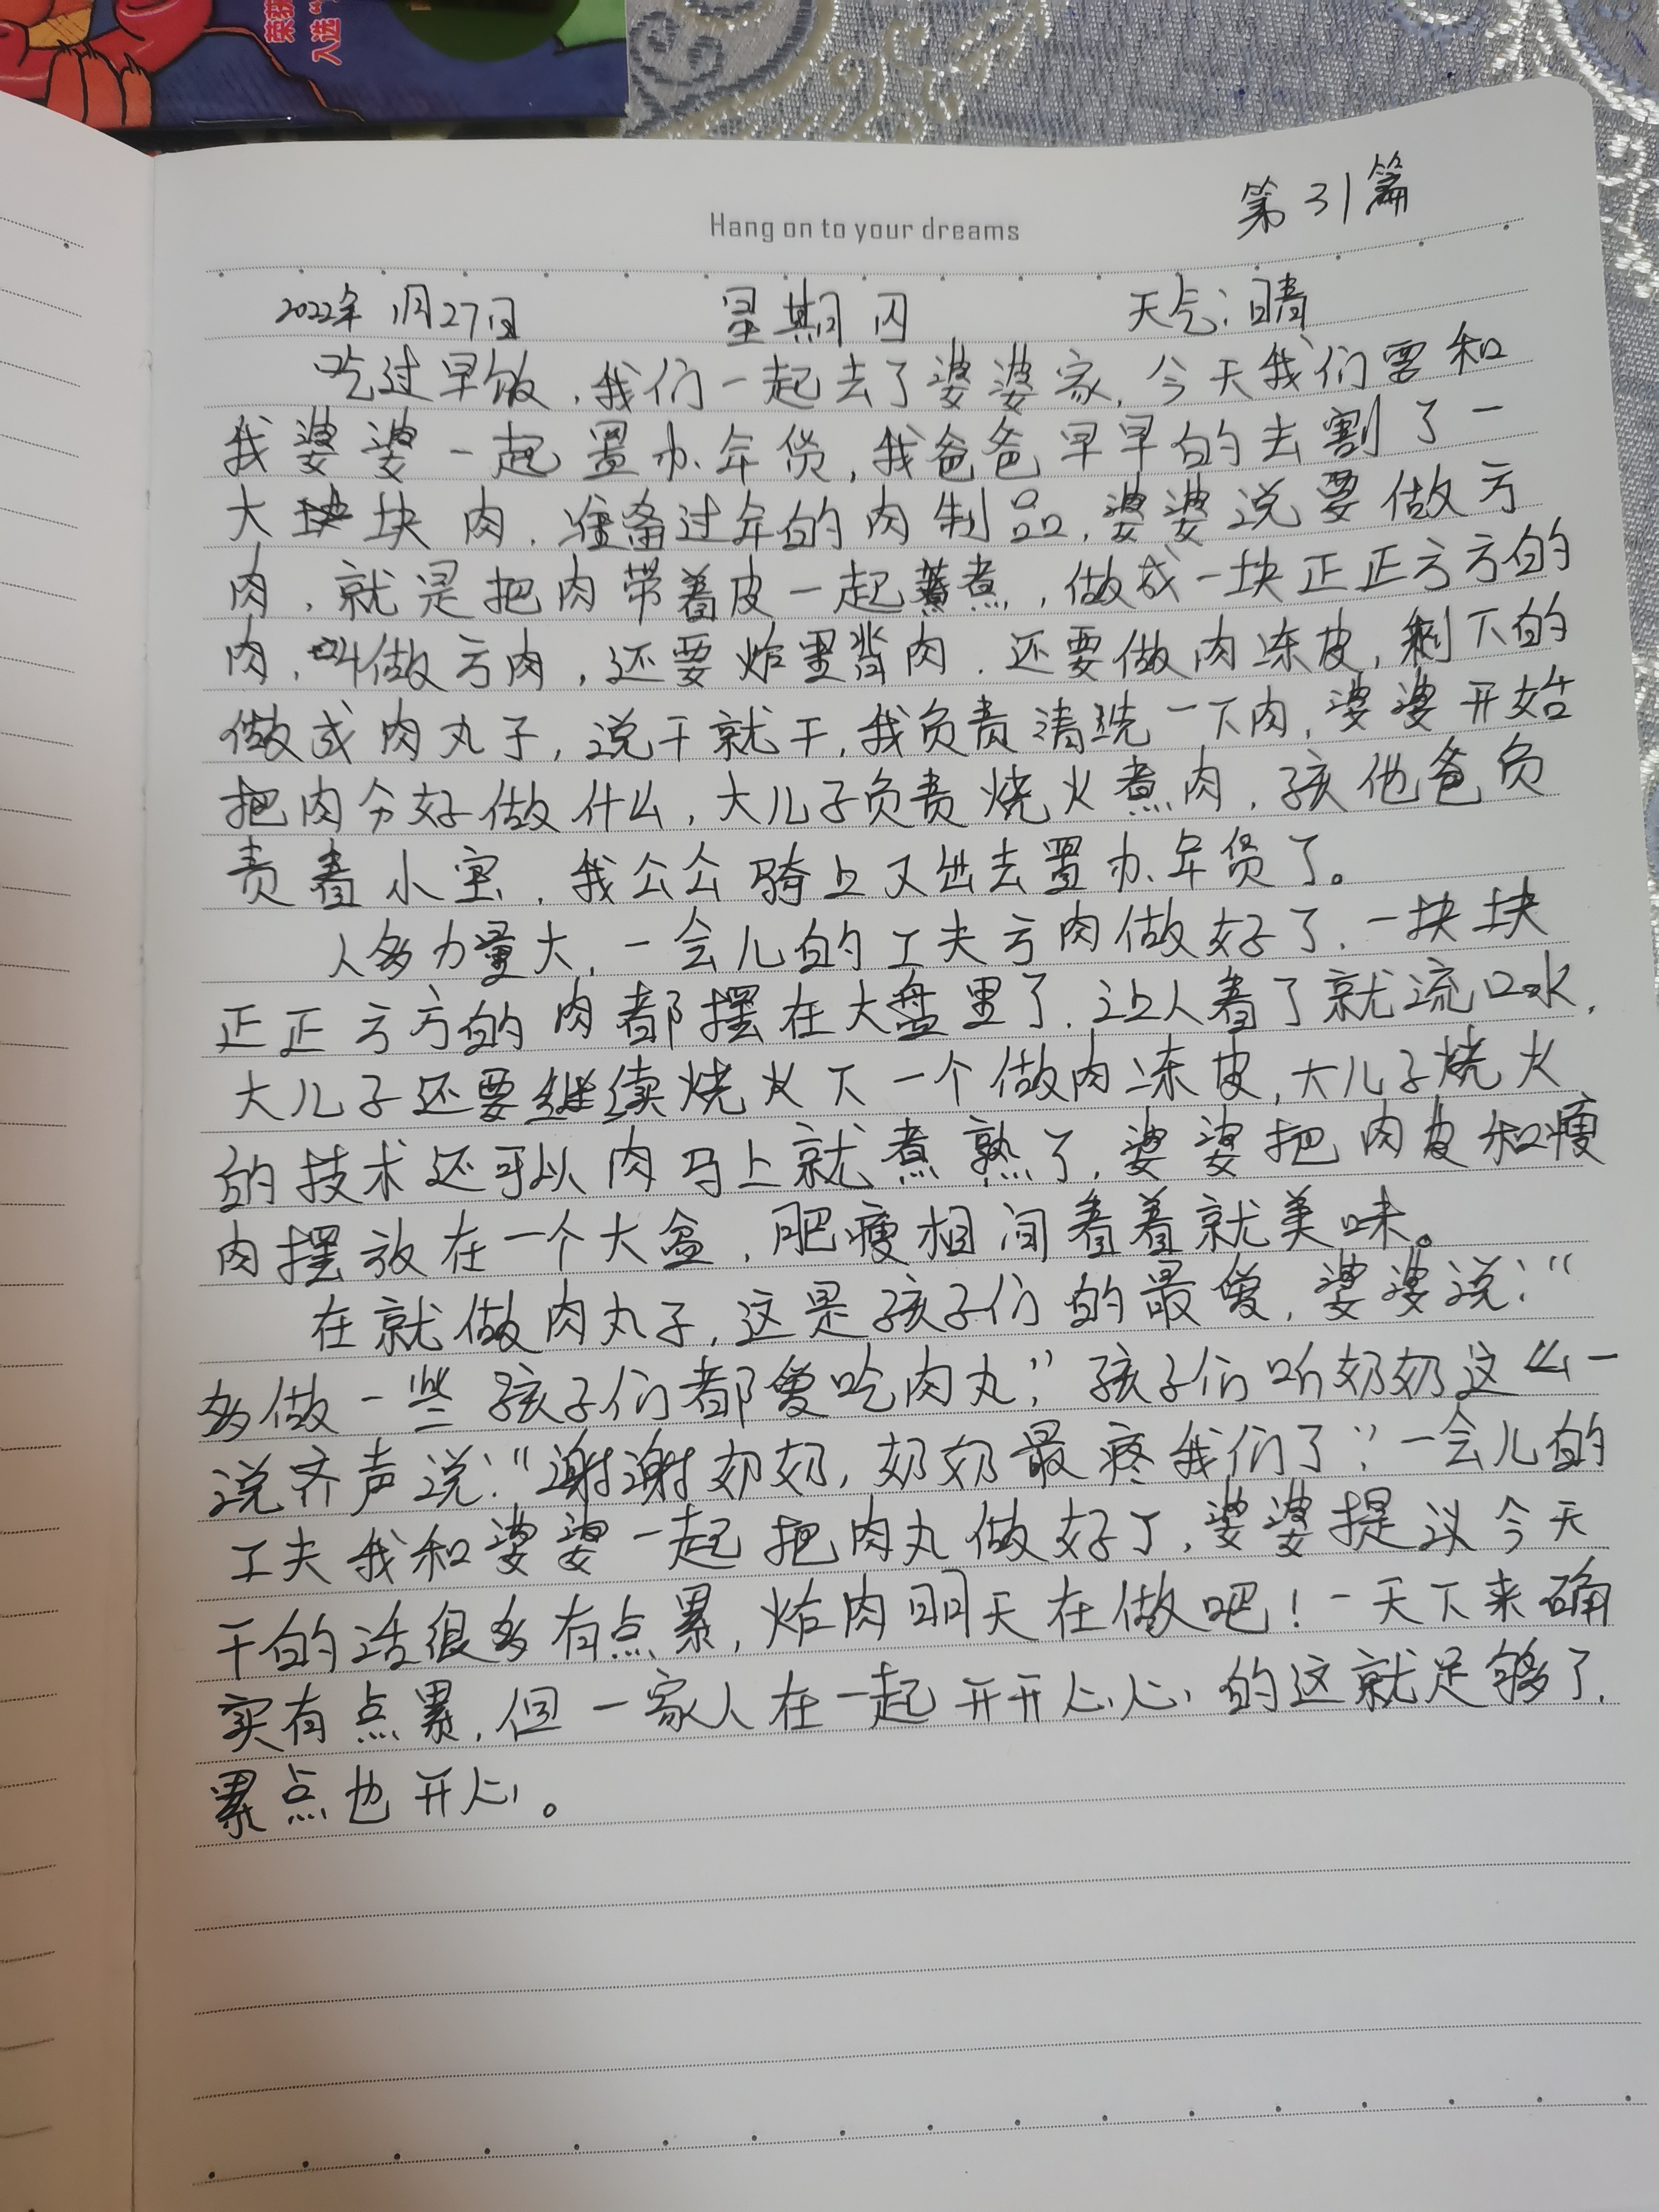 荣获
入选“
第31篇
Hang on to your dreams
2022年1月27日 星期四 天气:晴
吃过早饭,我们一起去了婆婆家,今天我们要和
我婆婆一起置办年货,我爸爸早早的去割了一
大块块肉,准备过年的肉制品,婆婆说要做方
肉,就是把肉带着皮一起煮,做成一块正正方方的
肉,叫做方肉,还要炸里脊肉,还要做肉冻皮,剩下的
做成肉丸子,说干就干,我负责清洗一下肉,婆婆开始
把肉分好做什么,大儿子负责烧火煮肉,孩他爸负
责看小宝,我公公骑上又出去置办年货了。
人多力量大,一会儿的工夫方肉做好了,一块块
正正方方的肉都摆在大盘里了,让人看了就流口水,
大儿子还要继续烧火下一个做肉冻皮,大儿子烧火
的技术还可以肉马上就煮熟了,婆婆把肉皮和瘦
肉摆放在一个大盆,肥瘦相间看着就美味。
在就做肉丸子,这是孩子们的最爱,婆婆说:“
多做一些孩子们都爱吃肉丸;”孩子们听奶奶这么一
说齐声说:“谢谢奶奶,奶奶最疼我们了;”一会儿的
工夫我和婆婆一起把肉丸做好了,婆婆提议今天
干的活很多有点累,炸肉明天在做吧!一天下来确
实有点累,但一家人在一起开开心心的这就足够了,
累点也开心。